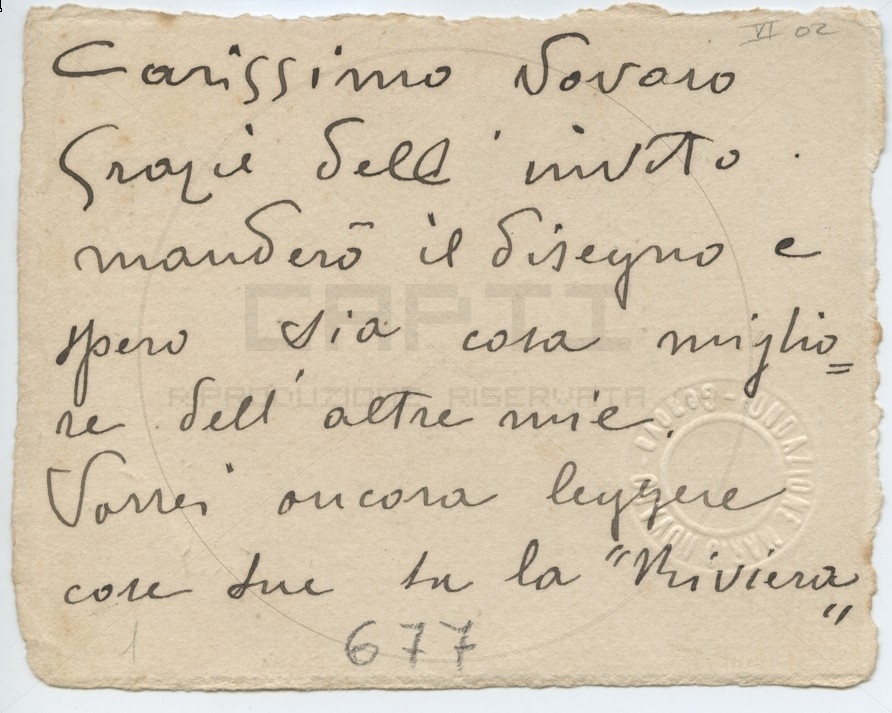 VI 02
Carissimo Novaro
Grazie dell' invito.
manderò il disegno e
spero sia cosa miglio=
re dell' altre mie.
Vorrei ancora leggere
cose tue su la "Riviera
"
677
1
CAPTI
RIPRODUZIONE RISERVATA
FONDAZIONE MARIO NOVARO